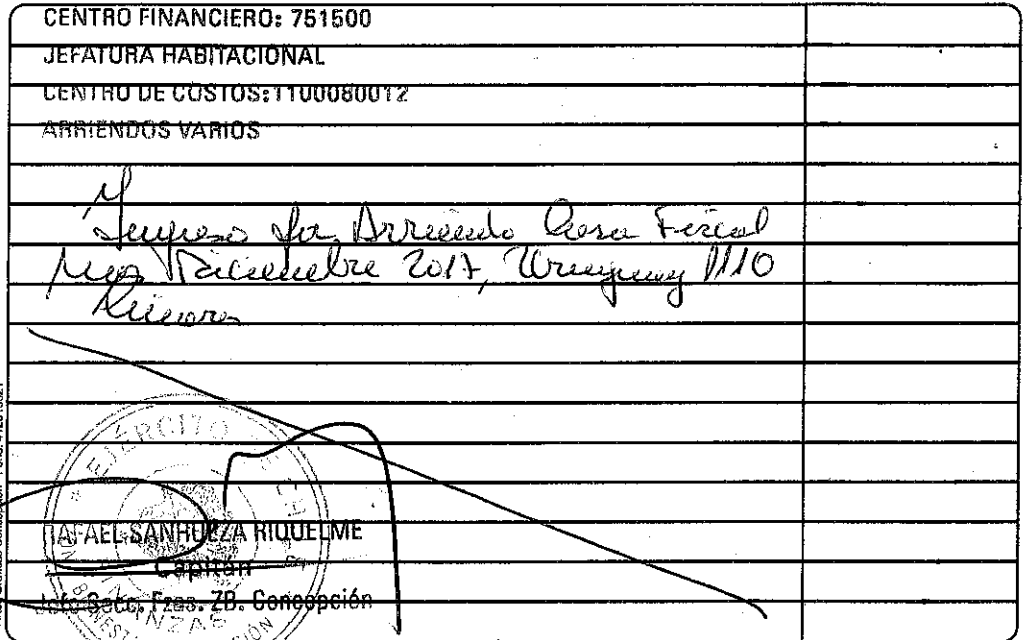 CENTRO FINANCIERO: 751500
JEFATURA HABITACIONAL
CENTRO DE COSTOS: 1100080012
ARRIENDOS VARIOS
Ingreso por Arriendo Casa Fiscal
mes Diciembre 2017, Uruguay 1110
Linares
EJÉRCITO
RAFAEL SANHUEZA RIQUELME
Capitán
Jefe Secc. Fzas. ZB. Concepción
FINANZAS